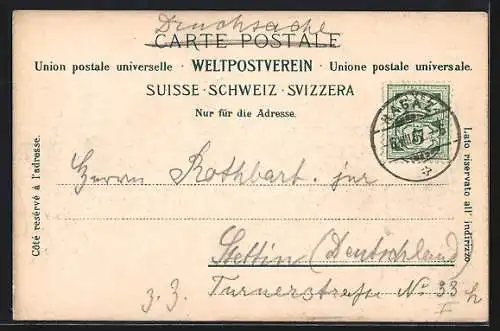 Drucksache
CARTE POSTALE
Union postale universelle · WELTPOSTVEREIN · Unione postale universale.
SUISSE · SCHWEIZ · SVIZZERA
Nur für die Adresse.
RAGAZ
Côté réservé à l'adresse.
Lato riservato all' indirizzo
Herrn Rothbart. jur
Stettin (Deutschland)
Turnerstraße No 33 h
I
z. Z.